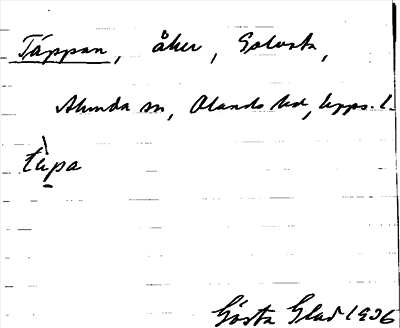 Täppan, åker, Golvsta,
Alunda sn, Olands hd, Upps. l.
täpa
Gösta Glad 1936